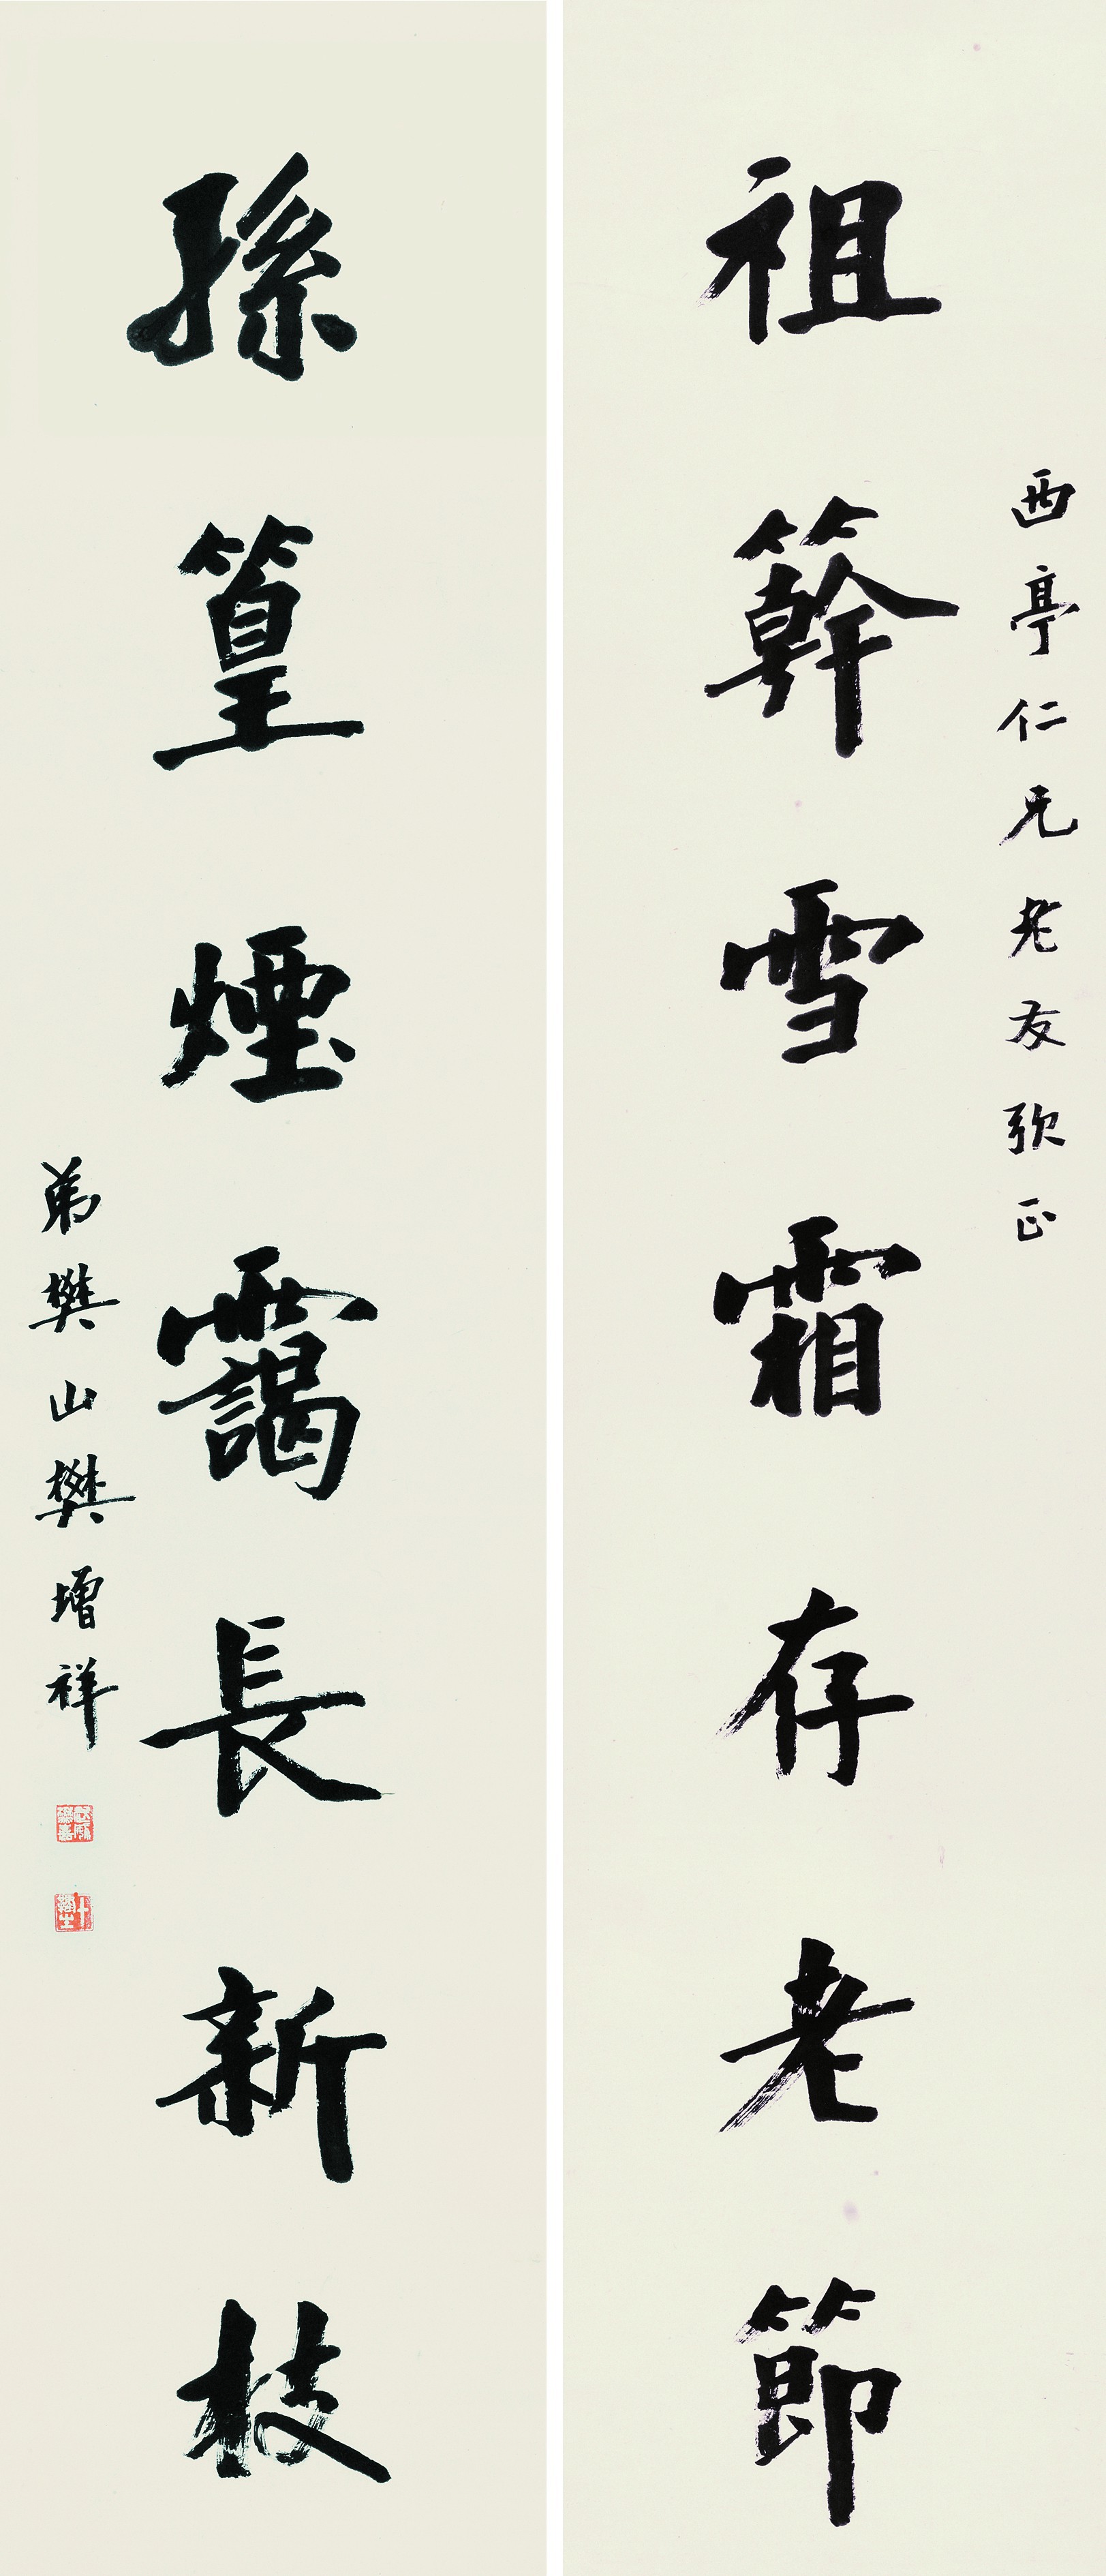 西亭仁兄老友 正
祖簳雪霜存老節
孫篁煙靄長新枝
弟樊山樊增祥